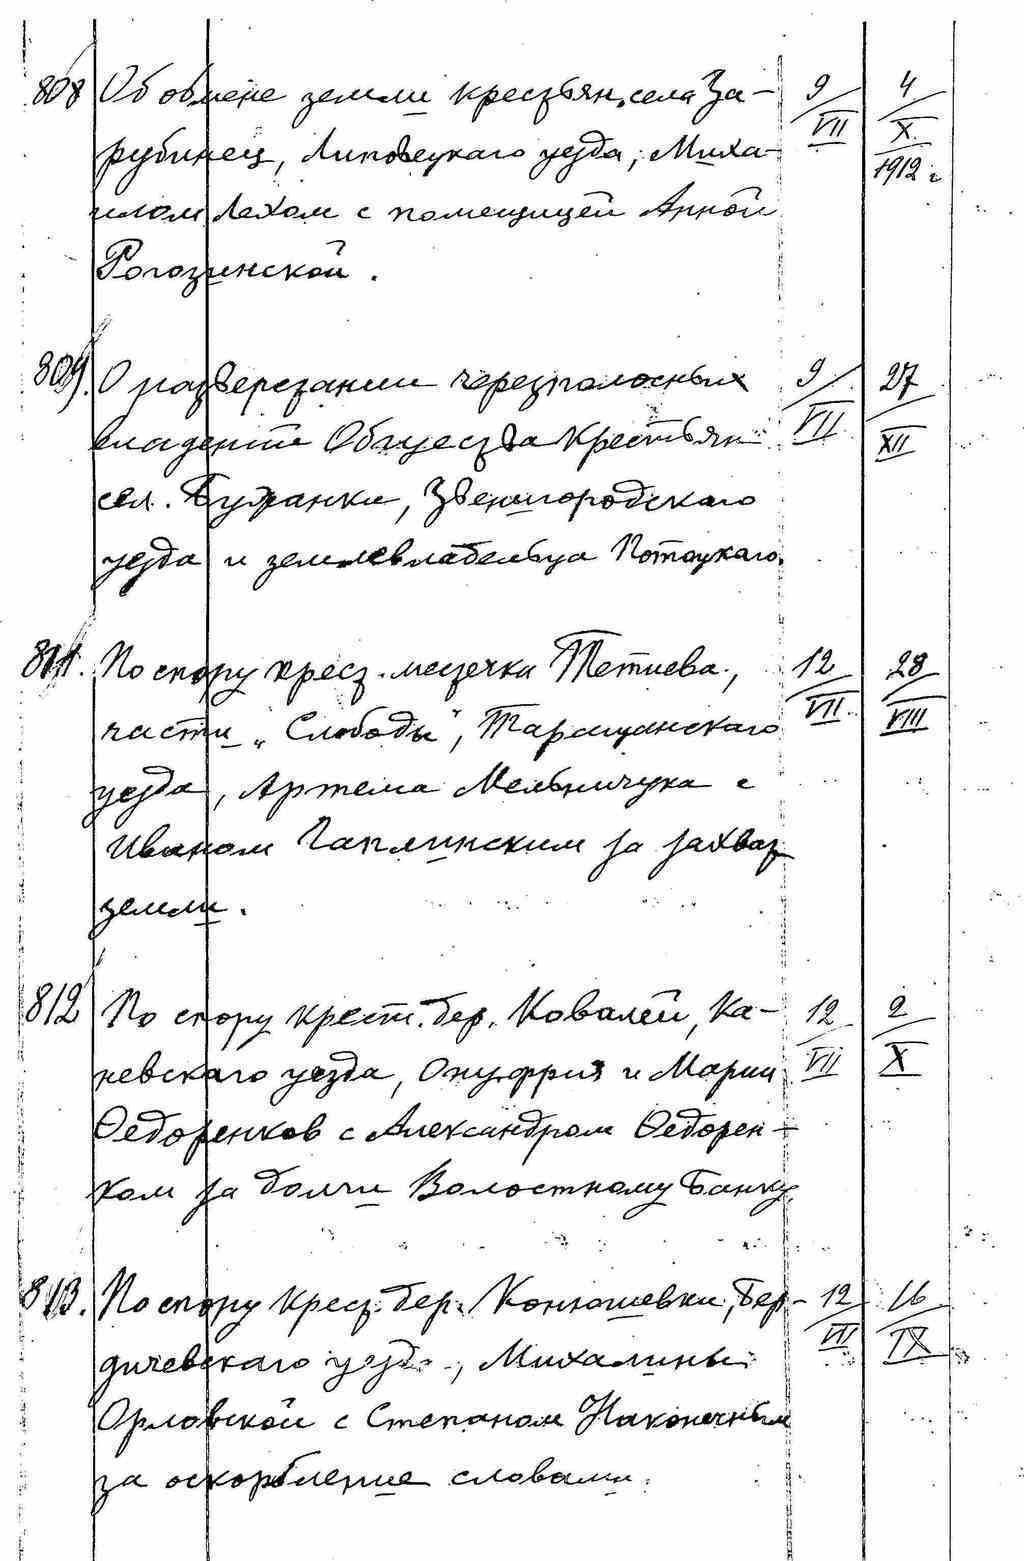 808 Об обмене земли крестьян. села За- 9/VII 4/X 1912 г
рубинец, Липовецкаго уезда, Миха-
илом Лехом с помещицей Анной
Рогозинской.
809. О разверстании черезполосных 9/VII 27/XII
владений Общества Крестьян
сел. Бужанки, Звенигородскаго
уезда и землевладельца Потоцкаго.
811. По спору крест. местечка Тетиева, 12/VII 28/VIII
части "Слободы", Таращанскаго
уезда, Артема Мельничука с
Иваном Чаплинским за захват
земли.
812 По спору крест. дер. Ковалей, Ка- 12/VII 2/X
невскаго уезда, Онуфрия и Марии
Федоренков с Александром Федорен-
ком за долги Волостному Банку.
813. По спору крест. дер. Конюшевки, Бер- 12/VII 16/IX
дичевскаго уезда, Михалины
Орловской с Степаном Наконечным
за оскорбление словами.